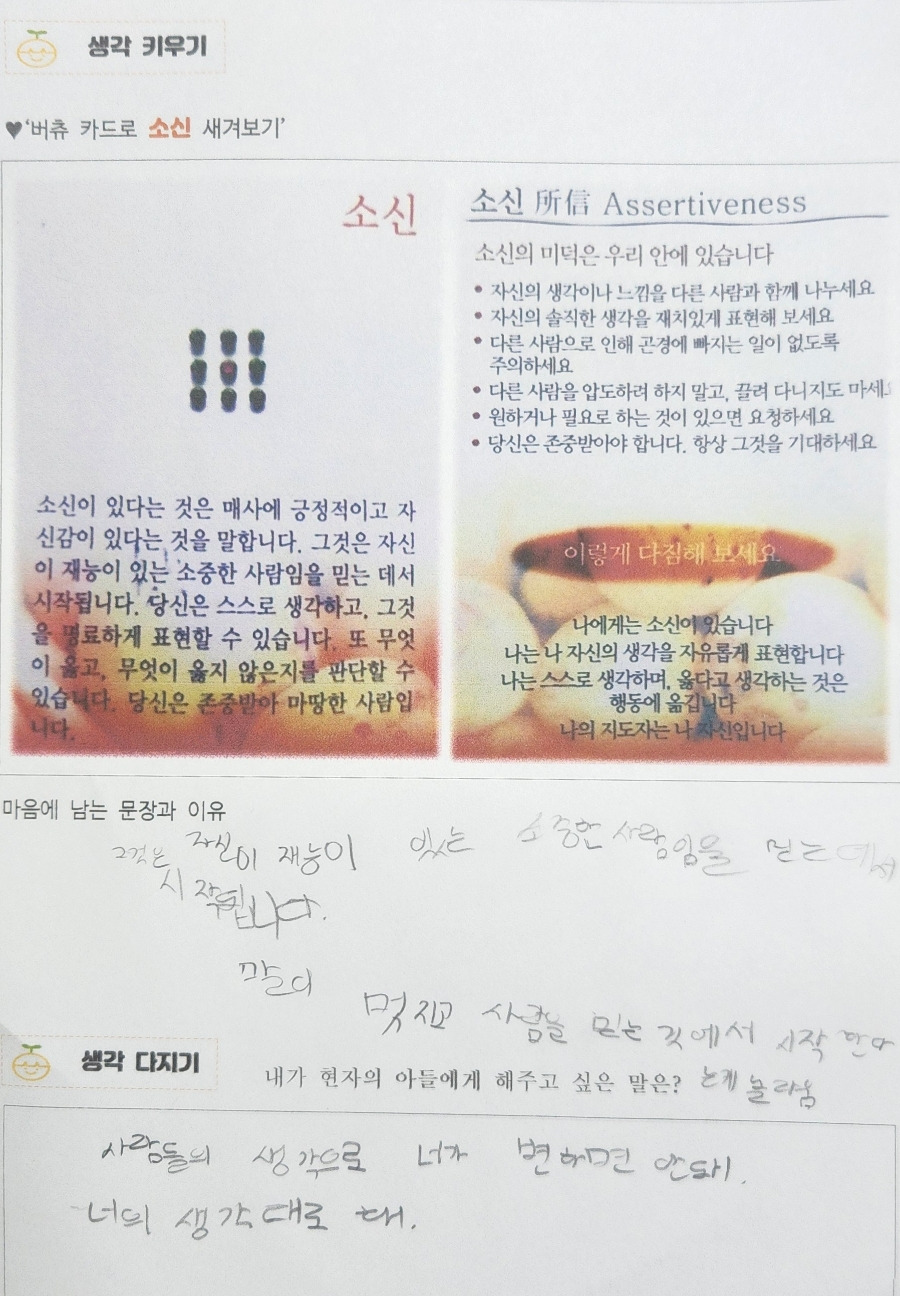 생각 키우기
♥'버츄 카드로 소신 새겨보기'
소신
소신이 있다는 것은 매사에 긍정적이고 자
신감이 있다는 것을 말합니다. 그것은 자신
이 재능이 있는 소중한 사람임을 믿는 데서
시작됩니다. 당신은 스스로 생각하고, 그것
을 명료하게 표현할 수 있습니다. 또 무엇
이 옳고, 무엇이 옳지 않은지를 판단할 수
있습니다. 당신은 존중받아 마땅한 사람입
니다.
소신 所信 Assertiveness
소신의 미덕은 우리 안에 있습니다
• 자신의 생각이나 느낌을 다른 사람과 함께 나누세요
• 자신의 솔직한 생각을 재치있게 표현해 보세요
• 다른 사람으로 인해 곤경에 빠지는 일이 없도록
주의하세요
• 다른 사람을 압도하려 하지 말고, 끌려 다니지도 마세요
• 원하거나 필요로 하는 것이 있으면 요청하세요
• 당신은 존중받아야 합니다. 항상 그것을 기대하세요
이렇게 다짐해 보세요
나에게는 소신이 있습니다
나는 나 자신의 생각을 자유롭게 표현합니다
나는 스스로 생각하며, 옳다고 생각하는 것은
행동에 옮깁니다
나의 지도자는 나 자신입니다
마음에 남는 문장과 이유
그것은 자신이 재능이 있는 소중한 사람임을 믿는 데서
시작됩니다.
말이
멋지고 사람을 믿는 것에서 시작 한다
는게 놀라움
생각 다지기
내가 현자의 아들에게 해주고 싶은 말은?
사람들의 생각으로 너가 변하면 안돼.
너의 생각대로 해.